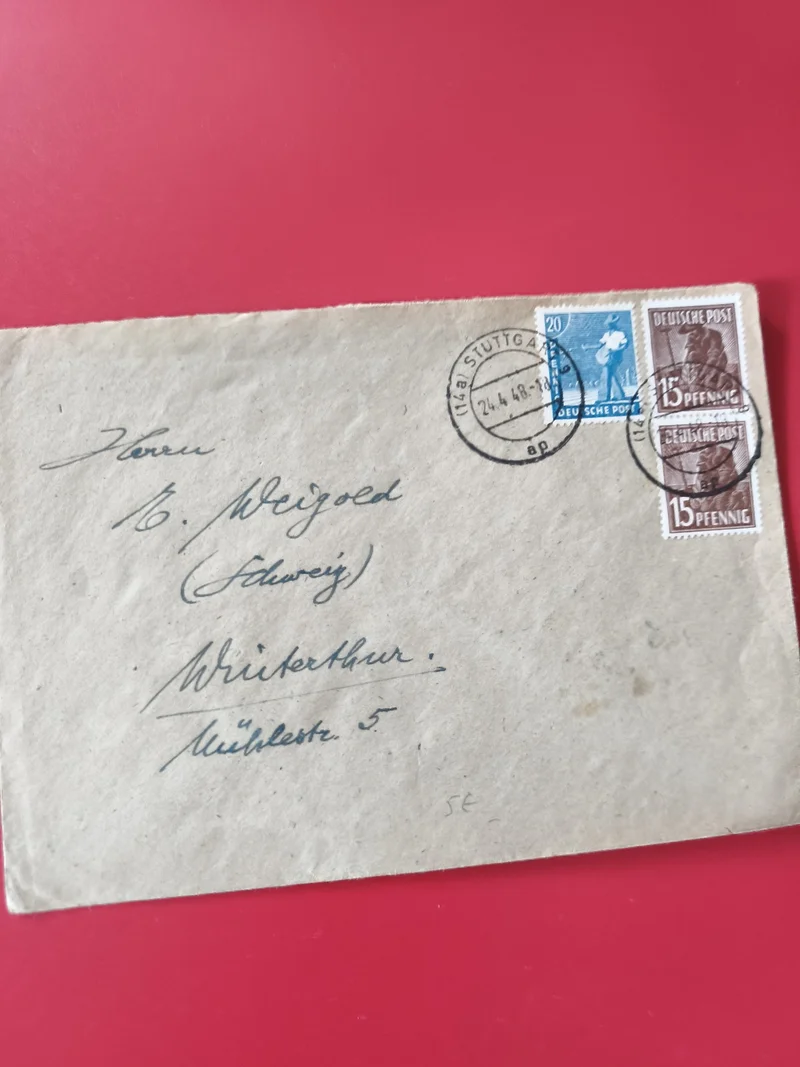 (14a) STUTTGART 9
24.4.48.-18
ap
20
PFENNIG
DEUTSCHE POST
DEUTSCHE POST
15 PFENNIG
DEUTSCHE POST
15 PFENNIG
Herrn
E. Weigold
(Schweiz)
Winterthur.
Mühlestr. 5
5€